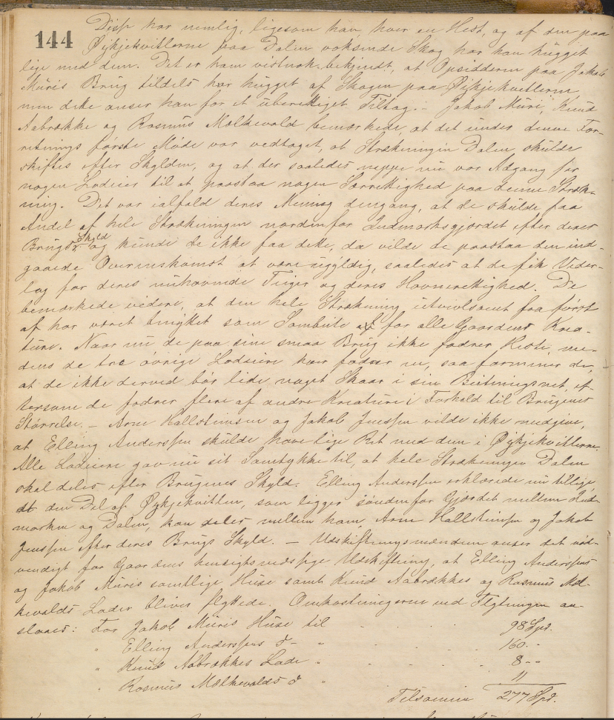 144
Disse har nemlig, ligesom han, hver en Hest, og af den paa
Øykjekvitlerne paa Dalen voksende Skog har han hugget
lige med dem. Det er ham vistnok bekjendt, at Opsidderen paa Jakob
Müris Brug tildels har hugget af Skogen paa Øykjekvitlerne,
men dette anser han for et uberettiget Tiltag. Jakob Müri, Knud
Aabrække og Rasmus Melkevold bemærkede, at det under denne For-
retnings første Møde var vedtaget, at Strækningen Dalen skulde
skiftes efter Skylden, og at der saaledes neppe nu var Adgang for
nogen Lodeier til at paastaa nogen Særrettighed paa denne Stræk-
ning. Det var ialfald deres Mening dengang, at de skulde faa
Andel af hele Strækningen nordenfor Indmarksgjærdet efter deres
Brugs Skyld og kunde de ikke faa dette, da vilde de paastaa den ind-
gaaede Overenskomst at være ugyldig, saaledes at de fik Veder-
lag for deres nuhavende Teiger og deres Havnerettighed. De
bemærkede videre, at den hele Strækning utvivlsomt fra først
af har været benyttet som Sambeite for alle Gaardens Krea-
ture. Naar nu de paa sine smaa Brug ikke fødrer Heste, me-
dens de tre øvrige Lodeiere hver fødrer en, saa formener de,
at de ikke derved bør lide noget Skaar i sin Beitningsret, ef-
tersom de fødrer flere af andre Kreature i Forhold til Brugenes
Størrelse. — Arne Hallsteinsen og Jakob Jenssen vilde ikke medgive,
at Elling Anderssen skulde have lige Ret med dem i Øykjekvitlerne.
Alle Lodeiere gav nu sit Samtykke til, at hele Strækningen Dalen
skal deles efter Brugenes Skyld; Elling Anderssen erklærede nu tillige,
at den Del af Øykjekvitlen, som ligger søndenfor Gjærdet mellem Ind-
marken og Dalen, kan deles mellem ham, Arne Hallsteinsen og Jakob
Jenssen efter deres Brugs Skyld. — Udskiftningsmændene anser det nød-
vendigt for Gaardens hensigtsmæssige Udskiftning, at Elling Anderssens
og Jakob Müris samtlige Huse samt Knud Aabrækkes og Rasmus Mel-
kevolds Lader bliver flyttede. Omkostningerne ved Flytningen an-
slaaes: For Jakob Müris Huse til 98 Spd.
" Elling Anderssens do - 160 - -
" Knud Aabrækkes Lade - 8 - -
" Rasmus Melkevolds do 11
Tilsammen 277 Spd.